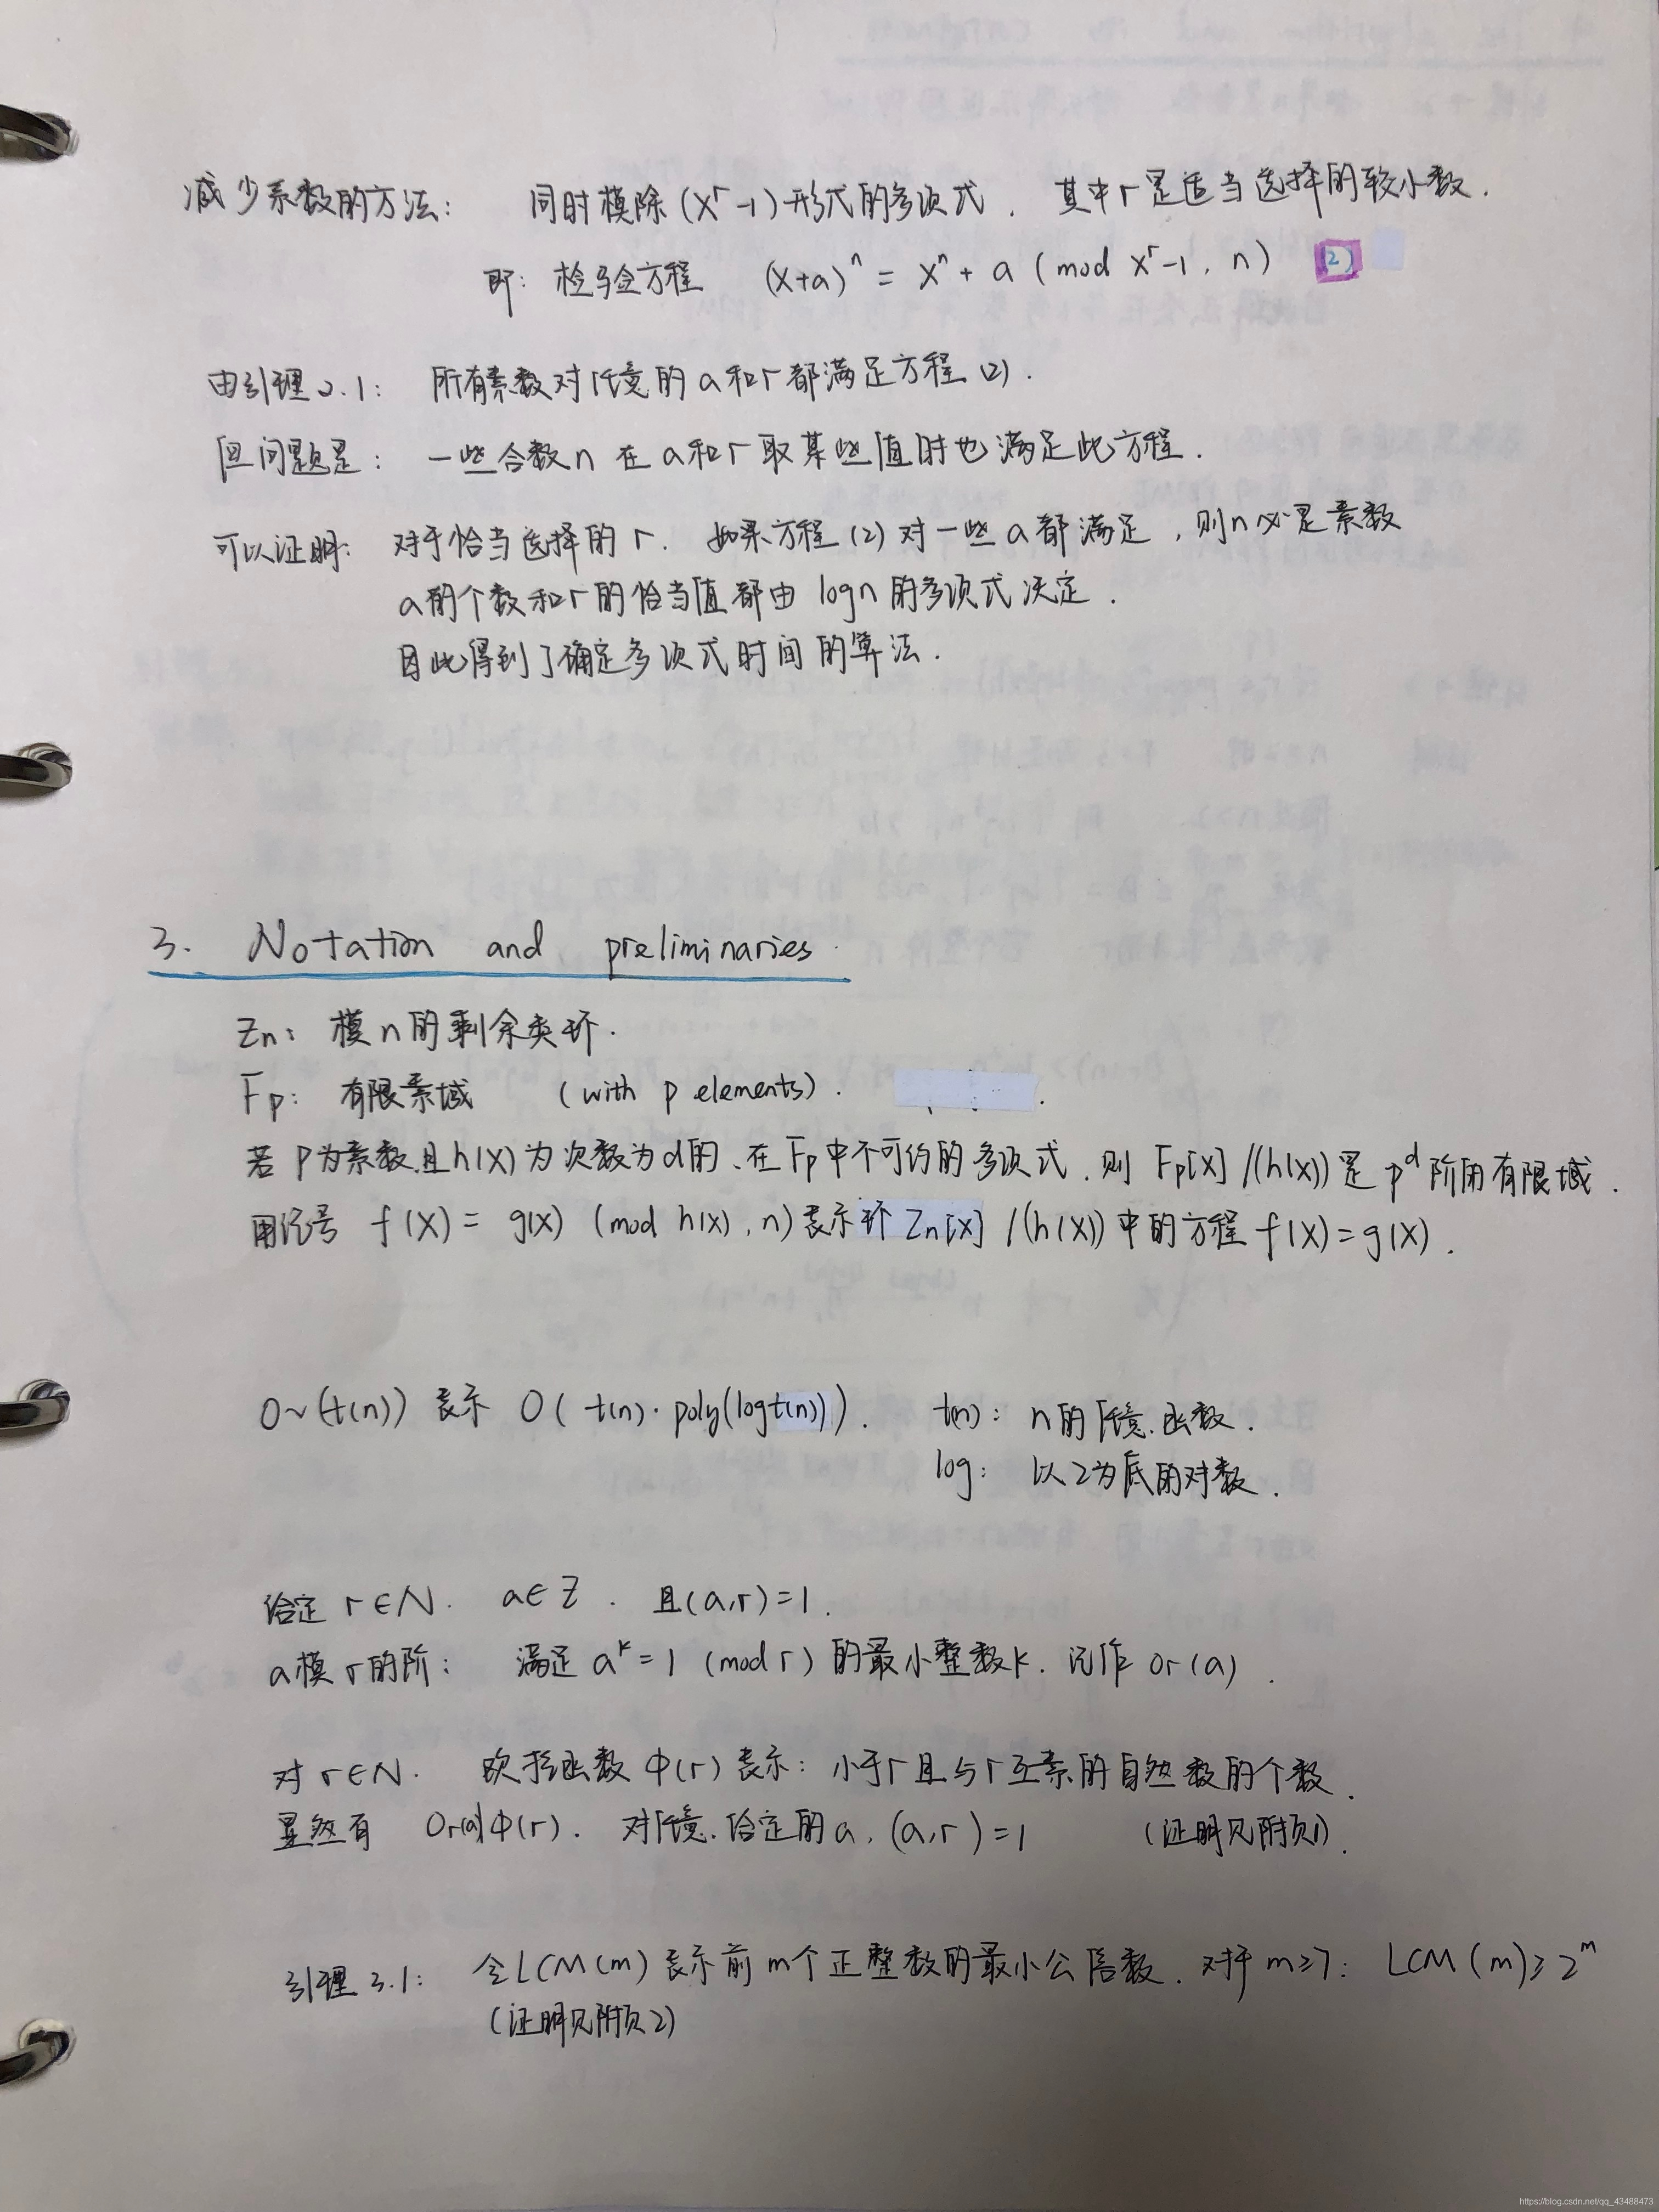 减少系数的方法： 同时模除(X^r-1)形式的多项式． 其中r是适当选择的较小数．
即： 检验方程 (X+a)^n = X^n + a (mod X^r-1, n) (2)
由引理2.1： 所有素数对任意的a和r都满足方程(2)．
但问题是： 一些合数n在a和r取某些值时也满足此方程．
可以证明： 对于恰当选择的r． 如果方程(2)对一些a都满足，则n必是素数
a的个数和r的恰当值都由logn的多项式决定．
因此得到了确定多项式时间的算法．
3. Notation and preliminaries.
Zn： 模n的剩余类环．
Fp： 有限素域 (with p elements).
若p为素数且h(X)为次数为d的、在Fp中不可约的多项式．则 Fp[X]/(h(X))是p^d阶的有限域．
用记号 f(X) = g(X) (mod h(X), n)表示环Zn[X]/(h(X))中的方程f(X)=g(X)．
O~(t(n)) 表示 O( t(n)·poly(logt(n))). t(n)： n的任意函数．
log： 以2为底的对数．
给定 r∈N． a∈Z． 且(a,r)=1．
a模r的阶： 满足a^k=1 (mod r)的最小整数k．记作 Or(a)．
对r∈N． 欧拉函数φ(r)表示：小于r且与r互素的自然数的个数．
显然有 Or(a)|φ(r)． 对任意给定的a，(a,r)=1 (证明见附页1)．
引理3.1： 令LCM(m)表示前m个正整数的最小公倍数．对于m≥7： LCM(m)≥2^m
(证明见附页2)
https://blog.csdn.net/qq_43488473